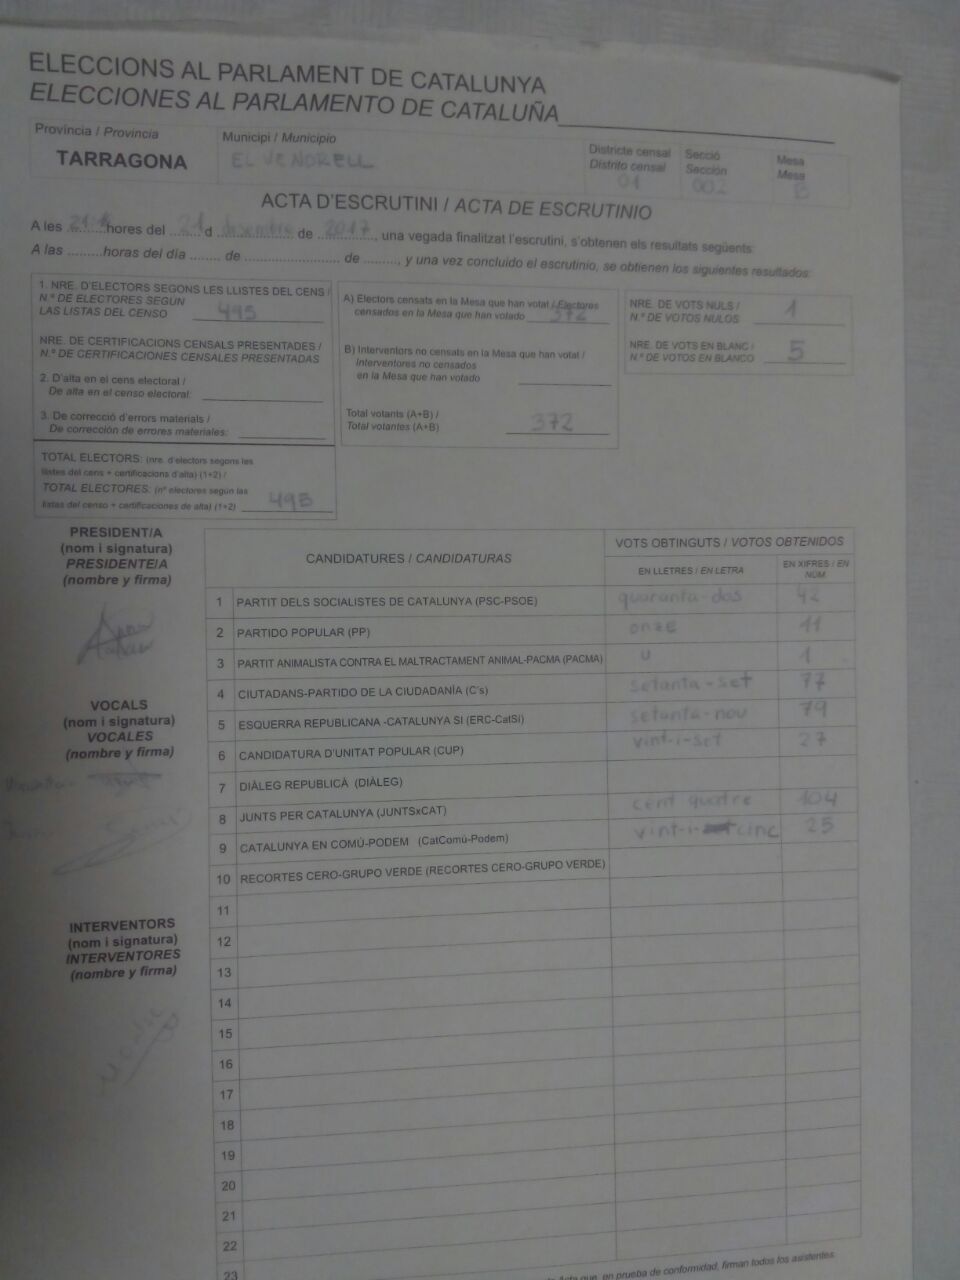 ELECCIONS AL PARLAMENT DE CATALUNYA
ELECCIONES AL PARLAMENTO DE CATALUÑA
Província / Provincia
TARRAGONA
Municipi / Municipio
EL VENDRELL
Districte censal
Distrito censal
01
Secció
Sección
002
Mesa
Mesa
B
ACTA D'ESCRUTINI / ACTA DE ESCRUTINIO
A les hores del 21 d desembre de 2017, una vegada finalitzat l'escrutini, s'obtenen els resultats següents:
A las .........horas del día ........ de ........................ de ........., y una vez concluido el escrutinio, se obtienen los siguientes resultados:
1. NRE. D'ELECTORS SEGONS LES LLISTES DEL CENS /
N.º DE ELECTORES SEGUN
LAS LISTAS DEL CENSO 495
NRE. DE CERTIFICACIONS CENSALS PRESENTADES /
N.º DE CERTIFICACIONES CENSALES PRESENTADAS
2. D'alta en el cens electoral /
De alta en el censo electoral:
3. De correcció d'errors materials /
De corrección de errores materiales:
TOTAL ELECTORS: (nre. d'electors segons les
llistes del cens + certificacions d'alta) (1+2) /
TOTAL ELECTORES: (nº electores según las
listas del censo + certificaciones de alta) (1+2) 495
A) Electors censats en la Mesa que han votat / Electores
censados en la Mesa que han votado 372
B) Interventors no censats en la Mesa que han votat /
Interventores no censados
en la Mesa que han votado
Total votants (A+B) /
Total votantes (A+B) 372
NRE. DE VOTS NULS /
N.º DE VOTOS NULOS 1
NRE. DE VOTS EN BLANC /
N.º DE VOTOS EN BLANCO 5
PRESIDENT/A
(nom i signatura)
PRESIDENTE/A
(nombre y firma)
VOCALS
(nom i signatura)
VOCALES
(nombre y firma)
INTERVENTORS
(nom i signatura)
INTERVENTORES
(nombre y firma)
Montse
CANDIDATURES / CANDIDATURAS
VOTS OBTINGUTS / VOTOS OBTENIDOS
EN LLETRES / EN LETRA
EN XIFRES / EN NÚM
1 PARTIT DELS SOCIALISTES DE CATALUNYA (PSC-PSOE) quaranta-dos 42
2 PARTIDO POPULAR (PP) onze 11
3 PARTIT ANIMALISTA CONTRA EL MALTRACTAMENT ANIMAL-PACMA (PACMA) u 1
4 CIUTADANS-PARTIDO DE LA CIUDADANÍA (C's) setanta-set 77
5 ESQUERRA REPUBLICANA -CATALUNYA SI (ERC-CatSí) setanta-nou 79
6 CANDIDATURA D'UNITAT POPULAR (CUP) vint-i-set 27
7 DIÀLEG REPUBLICÀ (DIÀLEG)
8 JUNTS PER CATALUNYA (JUNTSxCAT) cent quatre 104
9 CATALUNYA EN COMÚ-PODEM (CatComú-Podem) vint-i-cinc 25
10 RECORTES CERO-GRUPO VERDE (RECORTES CERO-GRUPO VERDE)
11
12
13
14
15
16
17
18
19
20
21
22
23
Acta que, en prueba de conformidad, firman todos los asistentes